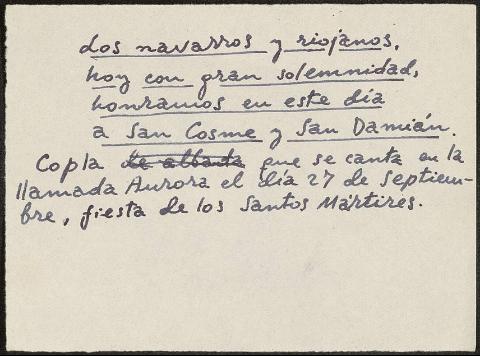 Los navarros y riojanos,
hoy con gran solemnidad,
honramos en este día
a San Cosme y San Damián.
Copla de albada que se canta en la
llamada Aurora el día 27 de Septiem-
bre, fiesta de los Santos Mártires.